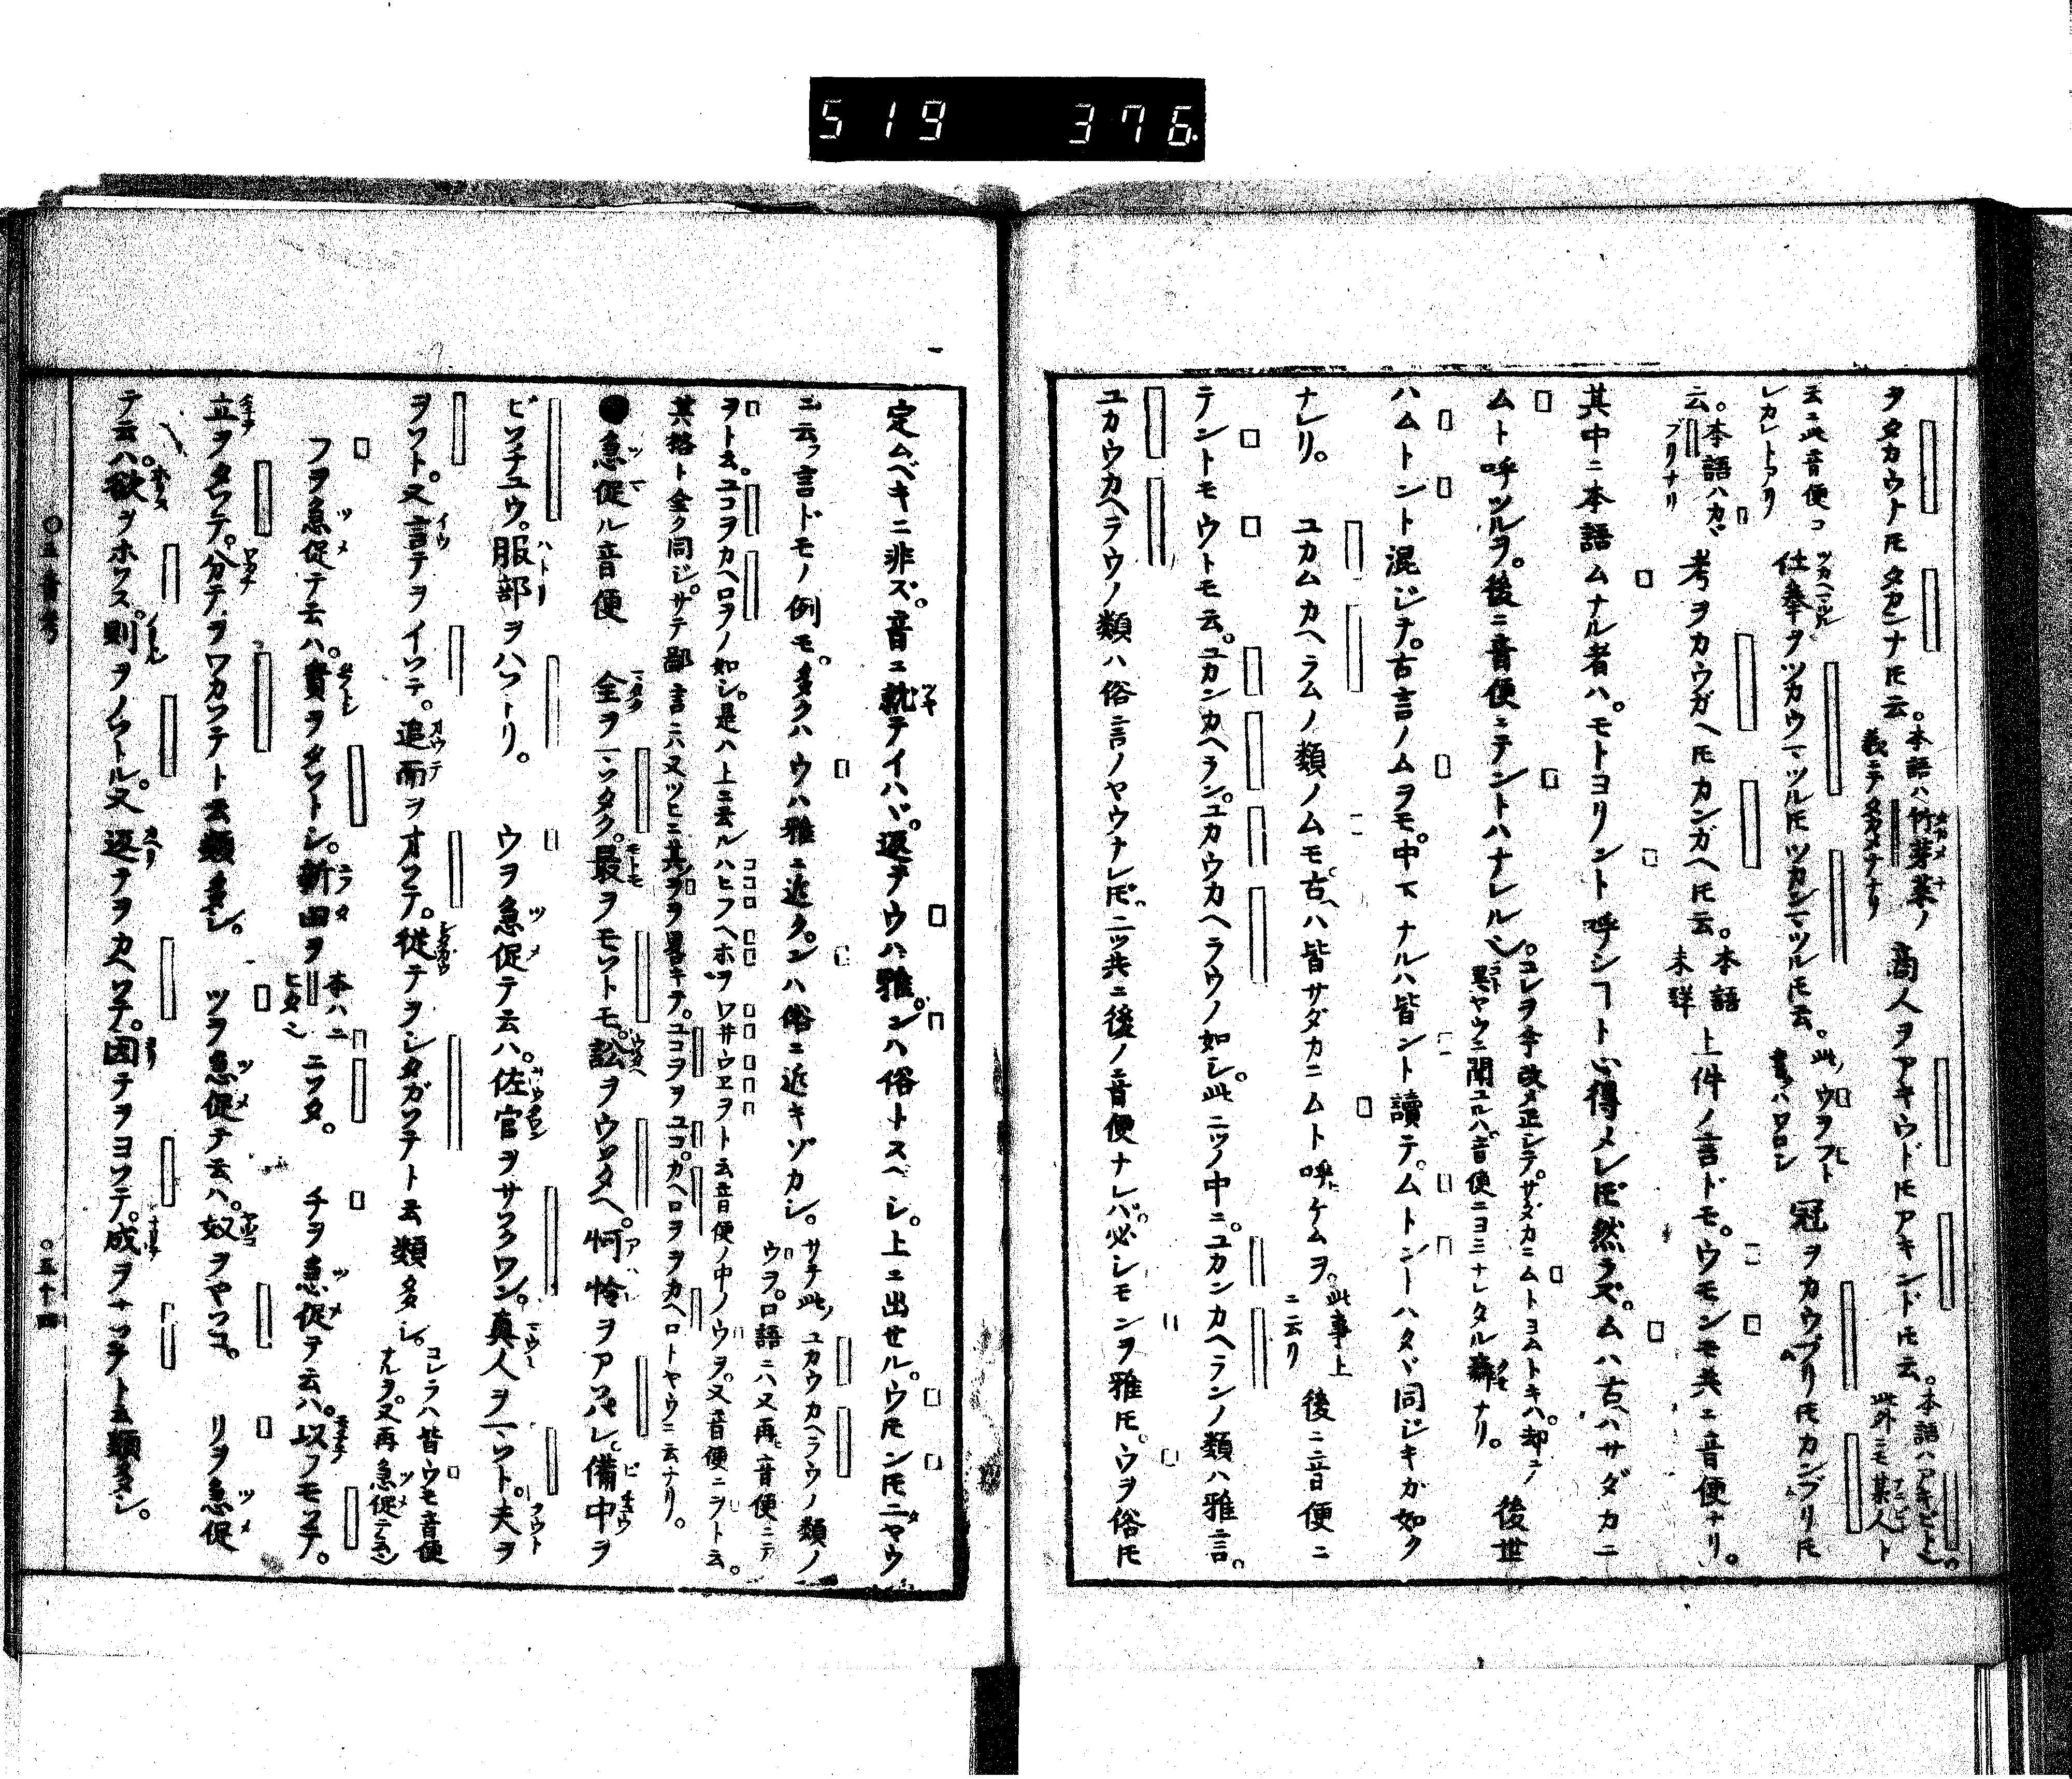 519 376
ヲタカウナトモタカンナトモ云。本語ハ竹芽菜ノ義ニテタカメナナリ 商人ヲアキウドトモアキンドトモ云。本語ハアキビト也。此外ニモ某人ト
云ニ此音便コレカレトアリ 仕奉ヲツカウマツルトモツカンマツルトモ云。此ノウヲフト書ハワロシ 冠ヲカウブリトモカンブリトモ
云。本語ハカヾブリナリ 考ヲカウガヘトモカンガヘトモ云。本語未詳 上件ノ言ドモ。ウモンモ共ニ音便ナリ。
其中ニ本語ムナル者ハ。モトヨリント呼シコト心得メレドモ然ラズ。ムハ古ハサダカニ
ムト呼ツルヲ。後ニ音便ニテントハナレル也。コレヲ今改メ正シテ。サダカニムトヨムトキハ。却テ異ヤウニ聞ユルハ音便ニヨミナレタル癖ナリ。 後世
ハムトント混ジテ。古言ノムヲモ。中下ナルハ皆ント讀テ。ムトントハタヾ同ジキカ如ク
ナレリ。 ユカムカヘラムノ類ノムモ。古ヘハ皆サダカニムト呼ケムヲ。此事上ニ云リ 後ニ音便ニ
テントモウトモ云。ユカンカヘラン。ユカウカヘラウノ如シ。此二ツノ中ニ。ユカンカヘランノ類ハ雅言。
ユカウカヘラウノ類ハ俗言ノヤウナレドモ。二ツ共ニ後ノ音便ナレバ。必シモンヲ雅トモ。ウヲ俗トモ
定ムベキニ非ズ。音ニ就テイハバ。返テウハ雅。ンハ俗トスベシ。上ニ出セル。ウトモントモ二ヤウ
ニ云フ言ドモノ例モ。多クハウハ雅ニ近ク。ンハ俗ニ近キゾカシ。サテ此ノユカウカヘラウノ類ノウヲ。口語ニハ又再ヒ音便ニテ
ヲト云。ユコヲカヘロヲノ如シ。是ハ上ニ云ルハヒフヘホヲワヰウヱヲト云音便ノ中ノウヲ。又音便ニヲト云。
其格ト全ク同ジ。サテ鄙言ニハ又ツヒニ其ヲヲ畧キテ。ユコヲヲユコ。カヘロヲヲカヘロトヤウニ云ナリ。
●急促ル音便 全ヲマツタク。最ヲモツトモ。訟ヲウツタヘ。怜ヲアツハレ。備中ヲ
ビツチユウ。服部ヲハツトリ。 ウヲ急促テ云ハ。佐官ヲサツクワン。真人ヲマツト。夫ヲ
ヲツト。又言テヲイツテ。追而ヲオツテ。従テヲシタガツテト云類多シ。コレラハ皆ウモ音便ナルヲ。又再急促テ云也
フヲ急促テ云ハ。貴ヲタツトシ。新田ヲ本ハニヒタ也 ニツタ。 チヲ急促テ云ハ。以ヲモツテ。
立ヲタツテ。分テヲワカツテト云類多シ。 ツヲ急促テ云ハ。奴ヲヤツコ。 リヲ急促
テ云ハ。欲ヲホツス。則ヲノツトル。又返テヲカヘツテ。因テヲヨツテ。成ヲナツテト云類多シ。
○五音考 ○五十四